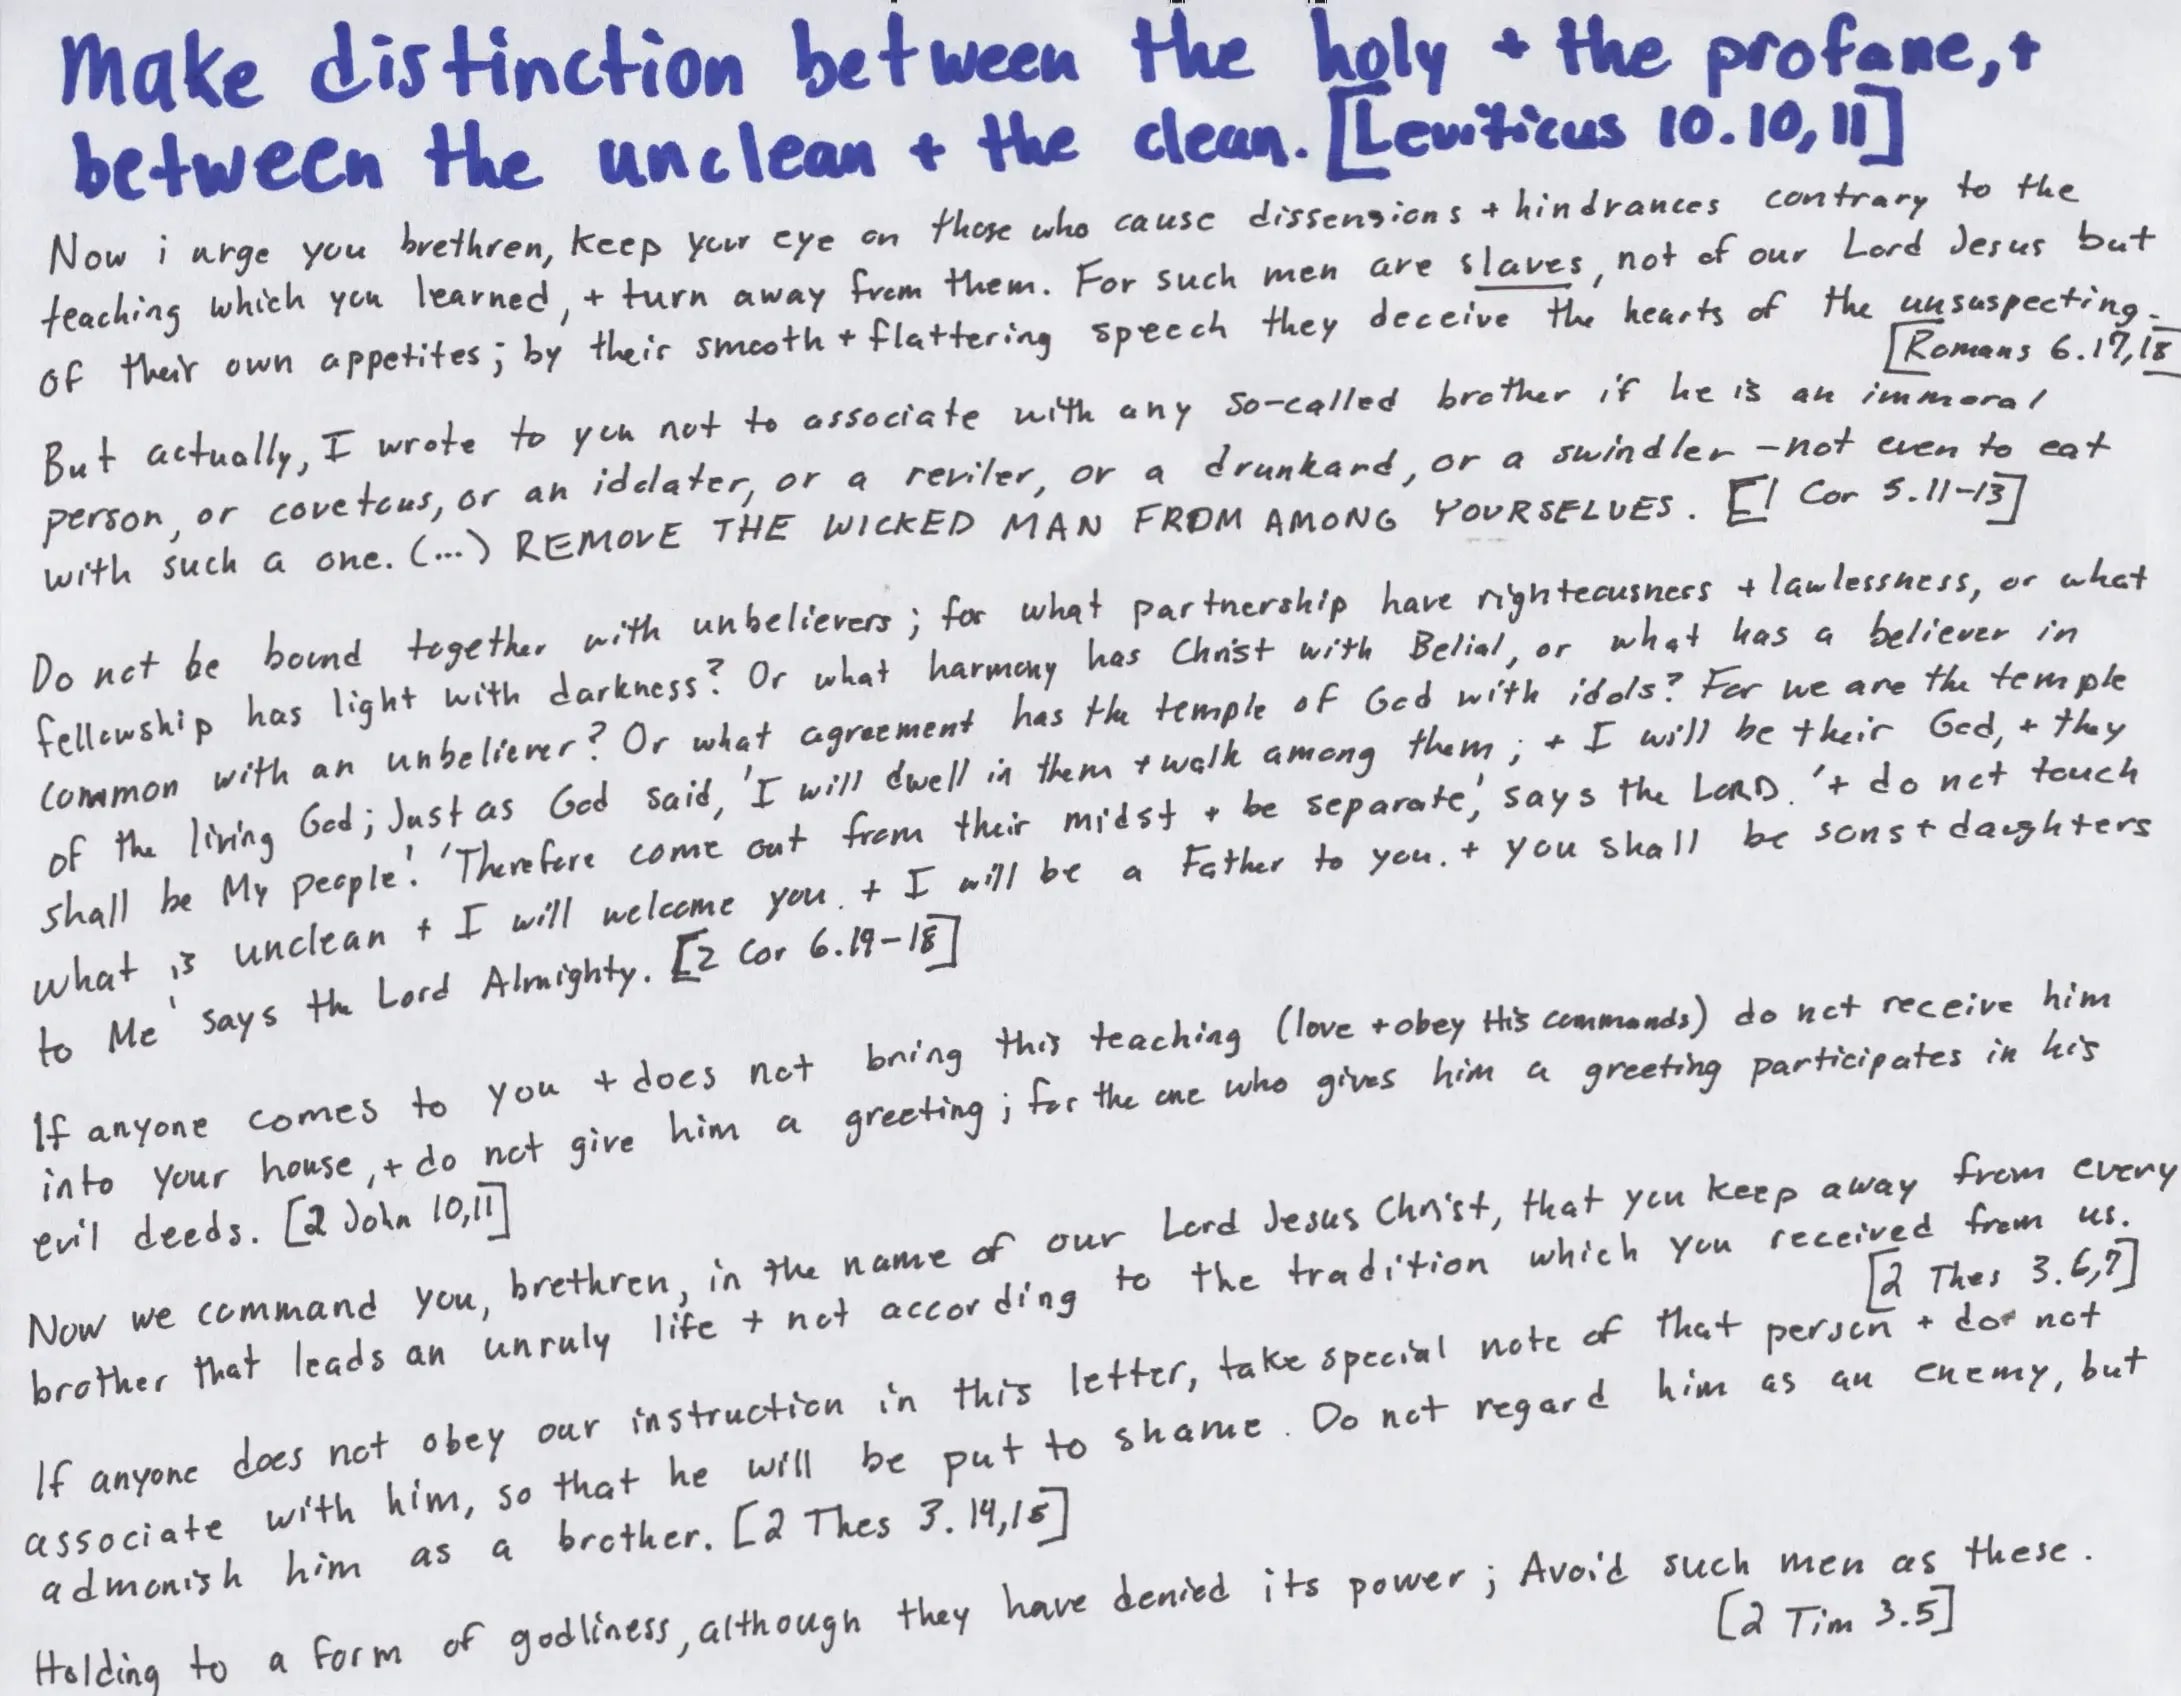 Make distinction between the holy + the profane, +
between the unclean + the clean. [Leviticus 10.10, 11]
Now i urge you brethren, keep your eye on those who cause dissensions + hindrances contrary to the
teaching which you learned, + turn away from them. For such men are slaves, not of our Lord Jesus but
of their own appetites; by their smooth + flattering speech they deceive the hearts of the unsuspecting.
[Romans 6.17,18
But actually, I wrote to you not to associate with any so-called brother if he is an immoral
person, or covetous, or an idolater, or a reviler, or a drunkard, or a swindler - not even to eat
with such a one. (...) REMOVE THE WICKED MAN FROM AMONG YOURSELVES. [1 Cor 5.11-13]
Do not be bound together with unbelievers; for what partnership have righteousness + lawlessness, or what
fellowship has light with darkness? Or what harmony has Christ with Belial, or what has a believer in
common with an unbeliever? Or what agreement has the temple of God with idols? For we are the temple
of the living God; Just as God said, 'I will dwell in them + walk among them; + I will be their God, + they
shall be My people'. 'Therefore come out from their midst + be separate', says the LORD. '+ do not touch
what is unclean + I will welcome you. + I will be a Father to you. + you shall be sons + daughters
to Me' says the Lord Almighty. [2 Cor 6.14-18]
If anyone comes to you + does not bring this teaching (love + obey His commands) do not receive him
into your house, + do not give him a greeting; for the one who gives him a greeting participates in his
evil deeds. [2 John 10,11]
Now we command you, brethren, in the name of our Lord Jesus Christ, that you keep away from every
brother that leads an unruly life + not according to the tradition which you received from us.
[2 Thes 3.6,7]
If anyone does not obey our instruction in this letter, take special note of that person + do not
associate with him, so that he will be put to shame. Do not regard him as an enemy, but
admonish him as a brother. [2 Thes 3.14,15]
Holding to a form of godliness, although they have denied its power; Avoid such men as these.
[2 Tim 3.5]